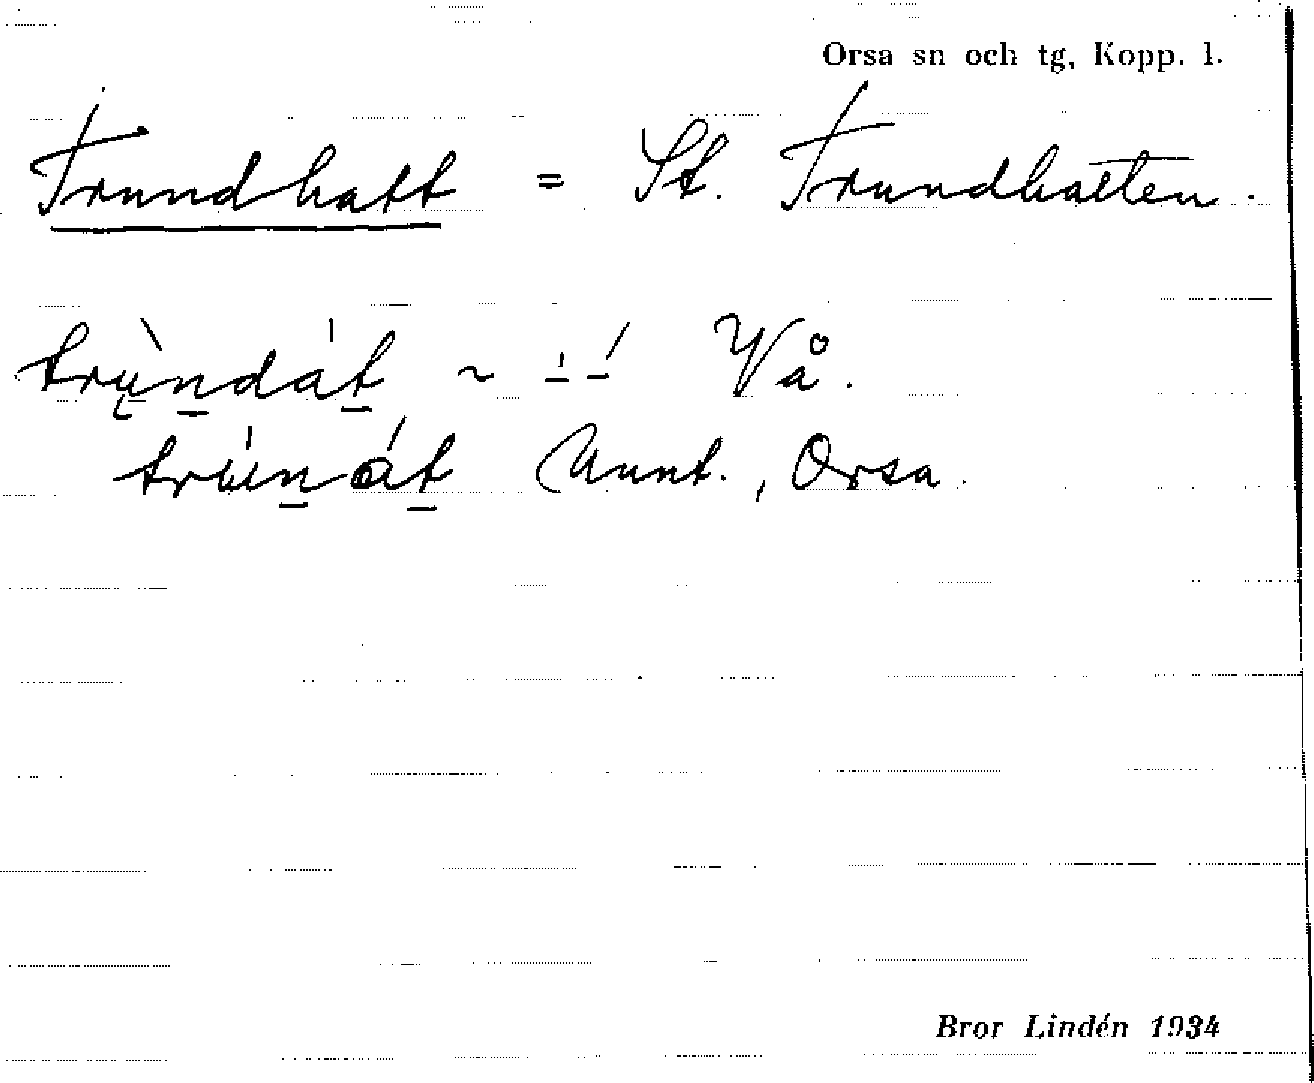 Orsa sn och tg, Kopp. l.
Trundhatt = St. Trundhatten.
trùndát ~ Vå.
trúnát Unnt., Orsa.
Bror Lindén 1934